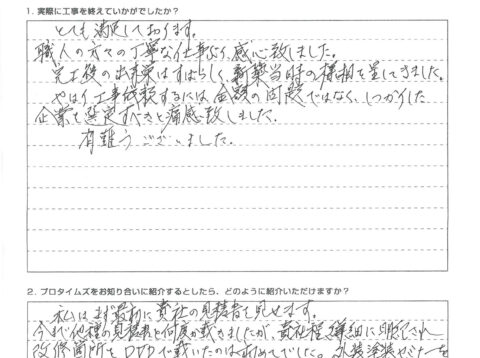 1. 実際に工事を終えていかがでしたか？
とても満足しております。
職人の方々の丁寧な仕事ぶり、感心致しました。
完工後の出来栄はすばらしく、新築当時の様相を呈してきました。
やはり工事依頼するには金額の回答ではなく、しっかりした
企業を選定すべきと痛感致しました。
有難うございました。
2. プロタイムズをお知り合いに紹介するとしたら、どのように紹介いただけますか？
私はまず最初に貴社の見積書を見せます。
今まで他社の見積書を何度か戴きましたが、貴社程詳細に明記され
改修箇所をDVDで戴いたのは初めてでした。外装塗装はどこを